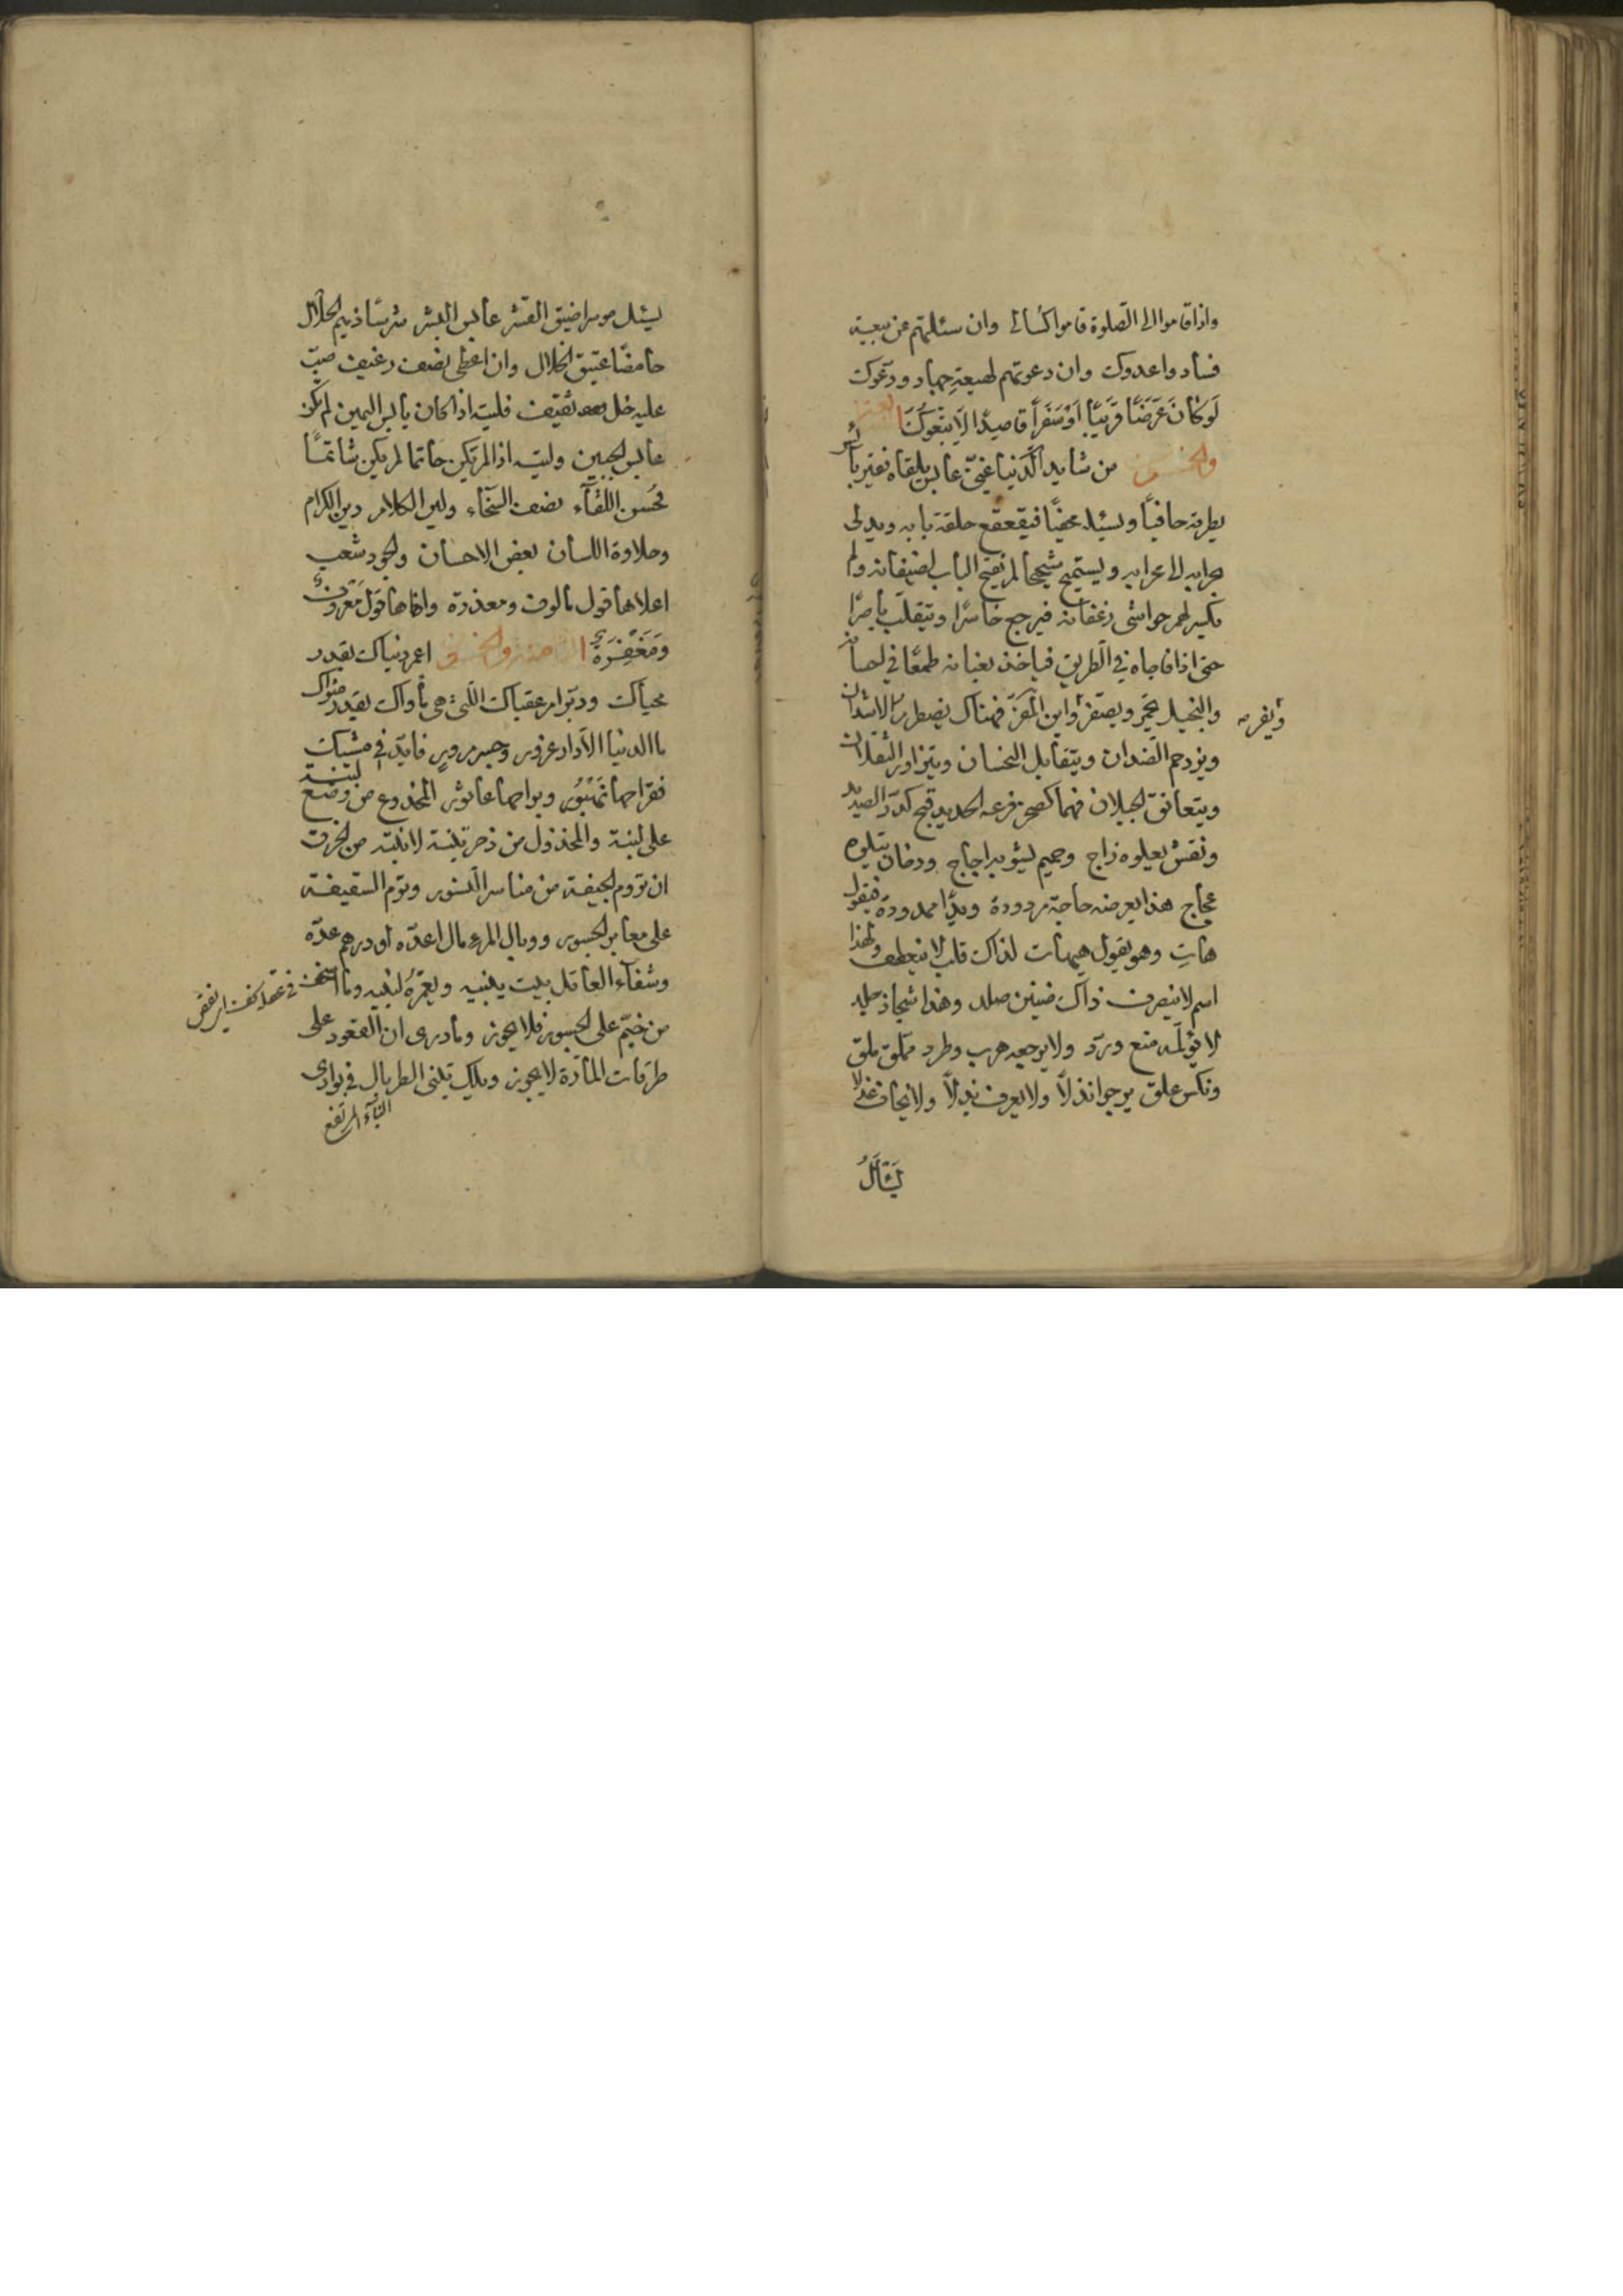 واذا قاموا الى الصلوة قاموا كسالى وان سئلتهم عن بيعة
فساد واعدوك وان دعوتهم لهيعة جهاد ودعوك
لَوْ كَانَ عَرَضًا قَرِيبًا اَوْ سَفَرًا قاصِدًا لَاتَّبَعُوكَ
والخمسون من شدايد الدنيا غنى عابس يلقاه فقير بائس
يطرقه حافيا ويسئله محفيا فيقعقع حلقة بابه ويدلى
بجرابه الى عرابه ويستميح شحيحا لم يفتح الباب لضيفانه ولم
يكسر لهم حواشى رغفانه فيرجع خاسرا وينقلب باصرا
حتى اذا فاجاه فى الطريق فياخذ بعنانه طمعا فى احسانه
والبخيل يحمر ويصفر واين المفر فهناك يصطرع الاسدان
ويفر صه
ويزدحم الضدان ويتقابل النحسان ويتزاور الثقلان
ويتعانق الجبلان فهما كصخر قرعه الحديد وقيح كدره الصديد
ونقش يعلوه زاج وحميم يشوبه اجاج ودخان يتلوه
عجاج هذا يعرض حاجة مردودة ويدا ممدودة فيقول
هات وهو يقول هيهات لذاك قلب لا ينعطف ولهذا
اسم لا ينصرف ذاك ضنين صلد وهذا شحاذ جلد
لا يؤلمه منع ورد ولا يرجعه هرب وطرد مملق ملق
ونكس علق يرجوا نذلا ولا يعرف بذلا ولا يخاف عذلا
يَسْأَلُ
يسئل موسرا ضيق القشر عابس البشر شرسا ذميم الخلال
حامضا عتيق الخلال وان اعطى نصف رغيف صب
عليه خل ثقيف فليته اذا كان يابس اليمين لم يكن
عابس الجبين وليته اذا لم يكن حاتما لم يكن شاتما
فحسن اللقاء نصف السخاء ولين الكلام دين الكرام
وحلاوة اللسان بعض الاحسان والجود شعب
اعلاها قول مالوف ومعذرة وادناها قَوْلٌ مَعْرُوفٌ
وَمَغْفِرَةٌ اعمر دنياك بقدر
محياك ودبر امر عقباك التى هى مأواك بقدر مثواك
ما الدنيا الا دار غرور وجسر مرور فاتئد فى مشيك
على لبنة والمخذول من ذخر تبنة لابنته من الخرق
ان تروم الجيفة من مناسر النسور وتوم السقيفة
على معابر الجسور ووبال المرء مال اعده او درهم عده
وشقاء العاقل بيت يبنيه ويعمره لبنيه وما
من خيم على الجسور فلا يجوز وما درى ان القعود على
طرقات المادة لا يجوز ويلك تبنى الطربال فى بوادى
البناء المرتفع